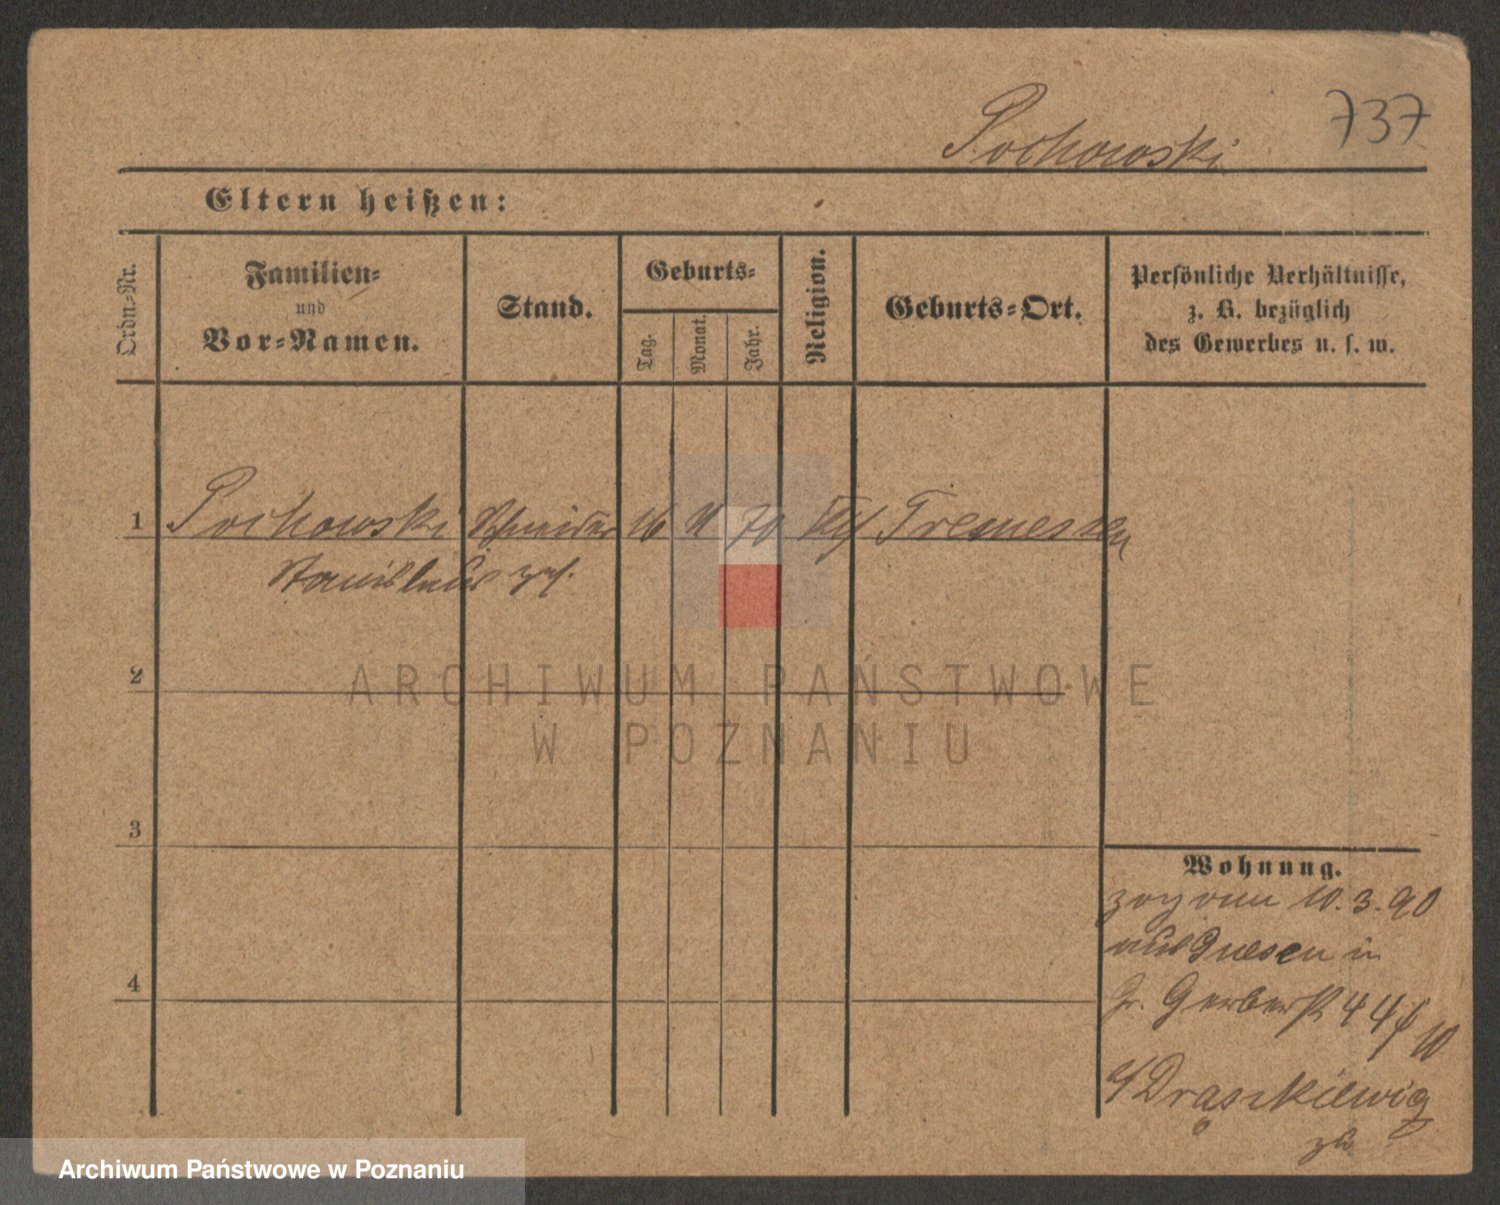 737
Pochowski
Eltern heißen:
Ordn.=Nr.
Familien=
und
Vor=Namen.
Stand.
Geburts=
Tag.
Monat.
Jahr.
Religion.
Geburts=Ort.
Persönliche Verhältnisse,
z. B. bezüglich
des Gewerbes u. s. w.
1 Pochowski Schneider 16 11 70 Kth Tremessen
Stanislaus
2
ARCHIWUM PAŃSTWOWE
W POZNANIU
3
4
Wohnung.
zog am 10.3.90
aus Gnesen in
Gr. Gerberst 44
10
Draszkiewicz
Archiwum Państwowe w Poznaniu